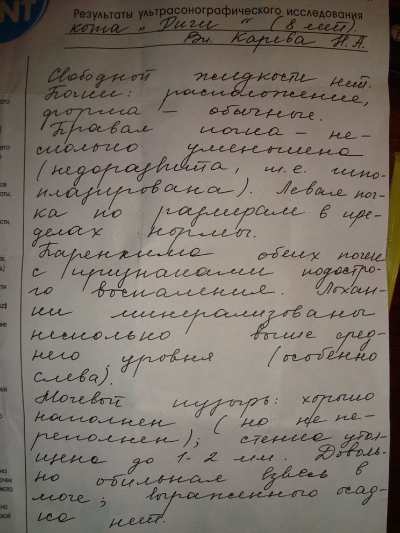 NT
Результаты ультрасонографического исследования
коша „Диги“ (8 лет).
Вл. Карева Н.А.
Свободной жидкости нет.
Почки: расположение,
форма – обычные.
Правая почка – не-
сколько уменьшена
(недоразвита, т.е. гипо-
плазирована). Левая поч-
ка по размерам в пре-
делах нормы.
Паренхима обеих почек
с признаками подостро-
го воспаления. Лохан-
ки минерализованы
несколько выше сред-
него уровня (особенно
слева);
Мочевой пузырь: хорошо
наполнен (но не пе-
реполнен); стенка утол-
щена до 1-2 мм. Доволь-
но обильная взвесь в
моче; выраженного осад-
ка нет.